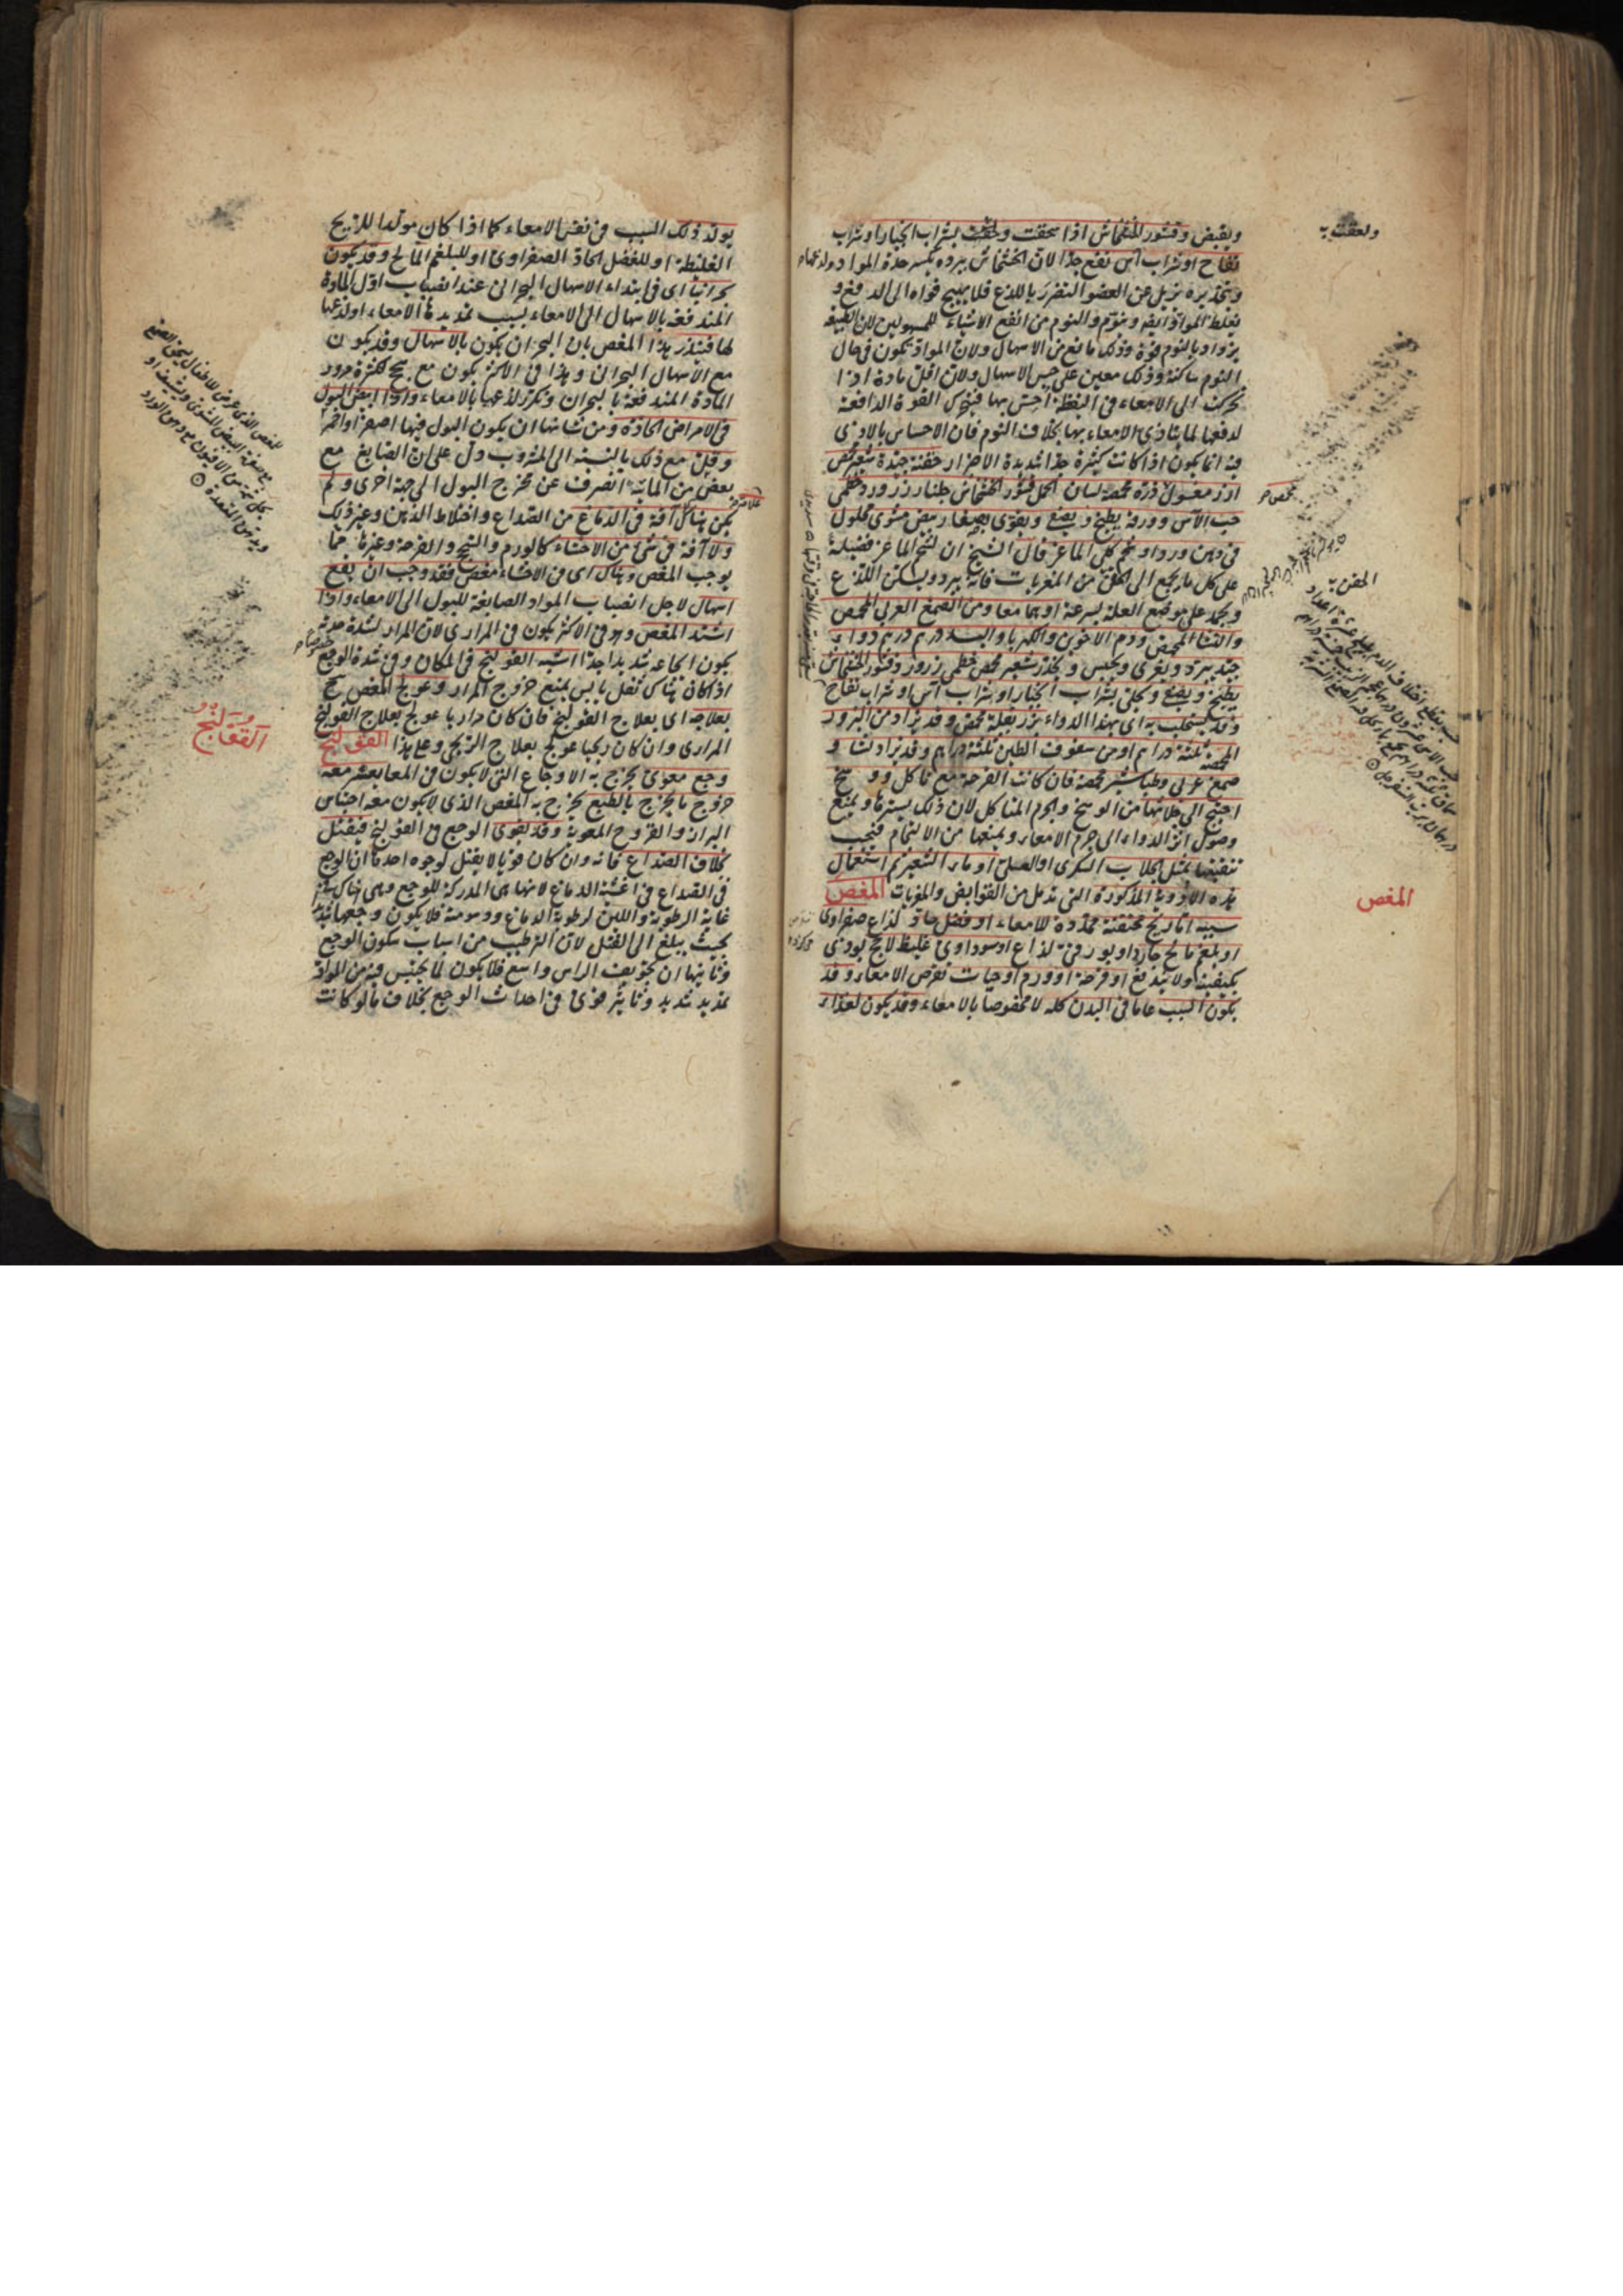 ويقبض وقشور الخشخاش اذا سحقت ولعقت بشراب الخيار او شراب
تفاح او شراب آس نفع جدا لان الخشخاش ببرده يكسر حدة المواد
وتخديره يزيل عن العضو التضرر باللذع فلا يهيج قواه الى الدفع و
يغلظ المواد ايضا وينوم والنوم من انفع الاشياء للمسهولين لان الطبيعة
يزداد بالنوم قوة وذلك مانع من الاسهال ولان المواد تكون في حال
النوم ساكنة وذلك معين على حبس الاسهال ولان اقل مادة اذا
تحركت الى الامعاء في اليقظة احس بها فيتحرك القوة الدافعة
لدفعها لما يتأذى الامعاء بها بخلاف النوم فان الاحساس بالاذى
فيه انما يكون اذا كانت كثيرة جدا شديدة الاضرار حقنة جيدة شعير محمص
ارز مغسول ذرة محمصة لسان الحمل قشور الخشخاش جلنار زرورد خطمى
حب الآس وورقه يطبخ ويصفى ويقوى بصفار بيض مشوى محلول
في دهن ورد او شحم كلى الماعز قال الشيخ ان لشحم الماعز فضيلة
على كل ما يجمع الى الحقن من المغريات فانه يبرد ويسكن اللذع
ويجمد على موضع العلة بسرعة او بهما معا ومن الصمغ العربى المحمص
والنشا المحمص ودم الاخوين والكهربا والبسد درهم درهم دواء
جيد يبرد ويغرى ويحبس ويخدر شعير محمص خطمى زرورد وقشور الخشخاش
يطبخ ويصفى ويحلى بشراب الخيار او شراب آس او شراب تفاح
وقد يستحلب به اى بهذا الدواء بزر بقلة محمص وقد يزاد من البزور
المحمصة ثلثة دراهم او من سفوف الطين ثلثة دراهم وقد يزاد نشا و
صمغ عربى وطباشير محمصة فان كانت القرحة مع تأكل و وسخ
احتيج الى جلائها من الوسخ واللحم المتأكل لان ذلك يسترها ويمنع
وصول اثر الدواء الى جرم الامعاء ويمنعها من الالتحام فيجب
تنقيتها بمثل الجلاب السكرى او العسلى او ماء الشعير ثم استعمال
هذه الادوية المذكورة التى تدمل من القوابض والمغريات المغص
سببه اما ريح محتقنة ممددة للامعاء او فضل حاد لذاع صفراوى
او بلغم مالح حاد او بورقى لذاع او سوداوى غليظ لاحج يوذى
بكيفيته ولا يندفع او قرحة او ورم او حيات تقرض الامعاء وقد
يكون السبب عاما في البدن كله لا مخصوصا بالامعاء وقد يكون لغذاء
ولعقت به
محمص
الحقن به
المغص
يولد ذلك السبب في نفس الامعاء كما اذا كان مولدا للريح
الغليظة او للفضل الحاد الصفراوى او للبلغم المالح وقد يكون
بحرانيا اى في ابتداء الاسهال البحرانى عند انصباب اول المادة
المندفعة بالاسهال الى الامعاء بسبب تمديدها الامعاء او لذعها
لها فينذر بهذا المغص بان البحران يكون بالاسهال وقد يكون
مع الاسهال البحرانى وهذا في الاكثر يكون مع سحج لكثرة مرور
المادة المندفعة بالبحران وتكرر لذعها بالامعاء واذا ابيض البول
في الامراض الحادة ومن شانها ان يكون البول فيها اصفر او احمر
وقل مع ذلك بالنسبة الى المشروب دل على ان الصابغ مع
بعض من المائية انصرف عن مخرج البول الى جهة اخرى ولم
يكن هناك آفة في الدماغ من الصداع واختلاط الذهن وغير ذلك
ولا آفة في شئ من الاحشاء كالورم والسحج والقرحة وغيرها مما
يوجب المغص وهناك اى في الاحشاء مغص فقد وجب ان يقع
اسهال لاجل انصباب المواد الصابغة للبول الى الامعاء واذا
اشتد المغص وهو في الاكثر يكون في المرارى لان المرار لشدة حدته
يكون ايجاعه شديدا جدا اشبه القولنج في المكان وفي شدة الوجع
اذا كان هناك ثفل يابس يمنع خروج المرار وعولج المغص ح
بعلاجه اى بعلاج القولنج فان كان مراريا عولج بعلاج القولنج
المرارى وان كان ريحيا عولج بعلاج الريحى وعلى هذا القولنج
وجع معوى يخرج به الاوجاع التى لا يكون في المعا يعسر معه
خروج ما يخرج بالطبع يخرج به المغص الذى لا يكون معه احتباس
البراز والقروح المعوية وقد يقوى الوجع في القولنج فيقتل
بخلاف الصداع فانه وان كان قويا لا يقتل لوجوه احدها ان الوجع
في الصداع في اغشية الدماغ لانها هى المدركة للوجع وهى هناك في
غاية الرطوبة واللين لرطوبة الدماغ ودسومته فلا يكون وجعها شديدا
بحيث يبلغ الى القتل لان الترطيب من اسباب سكون الوجع
وثانيها ان تجويف الراس واسع فلا يكون لما يحتبس فيه من المواد
تمديد شديد وتاثير قوى في احداث الوجع بخلاف ما لو كانت
علامة
للمغص الذى عرض للاطفال يسحق الصمغ
مع صفرة البيض المشوى
القولنج